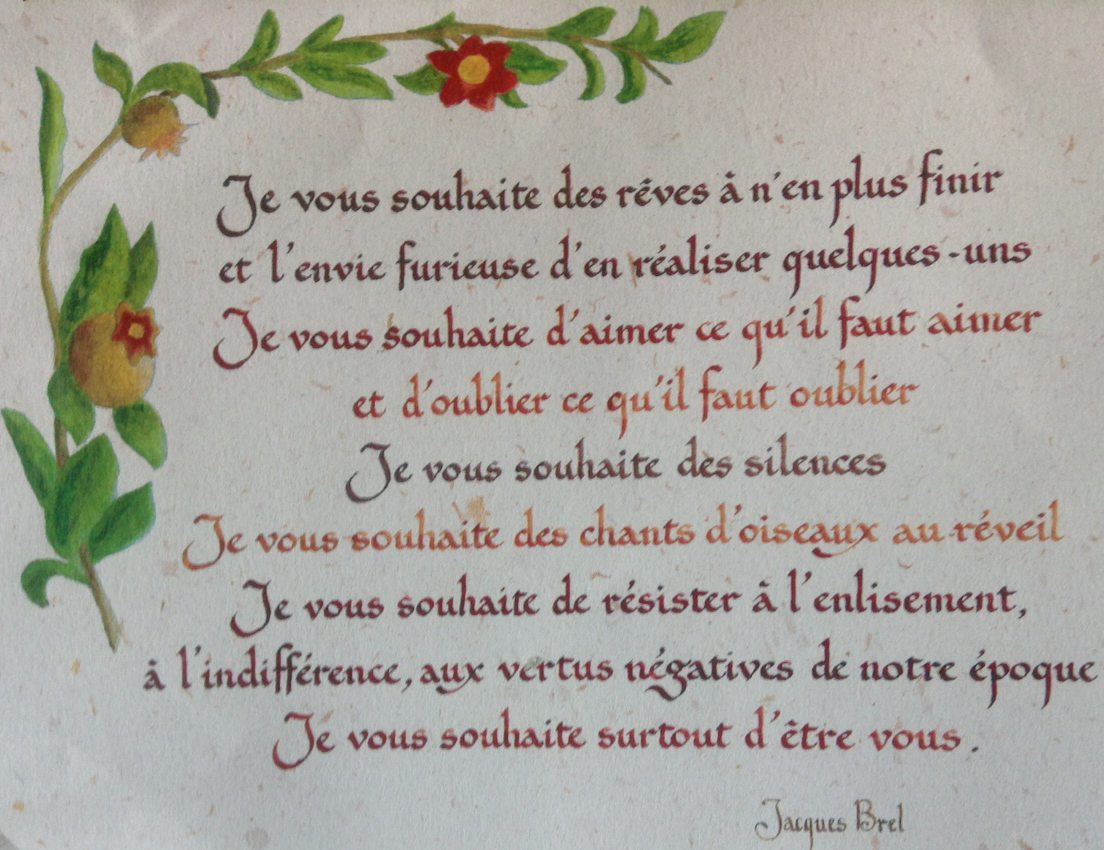 Je vous souhaite des rêves à n'en plus finir
et l'envie furieuse d'en réaliser quelques-uns
Je vous souhaite d'aimer ce qu'il faut aimer
et d'oublier ce qu'il faut oublier
Je vous souhaite des silences
Je vous souhaite des chants d'oiseaux au réveil
Je vous souhaite de résister à l'enlisement,
à l'indifférence, aux vertus négatives de notre époque
Je vous souhaite surtout d'être vous.
Jacques Brel